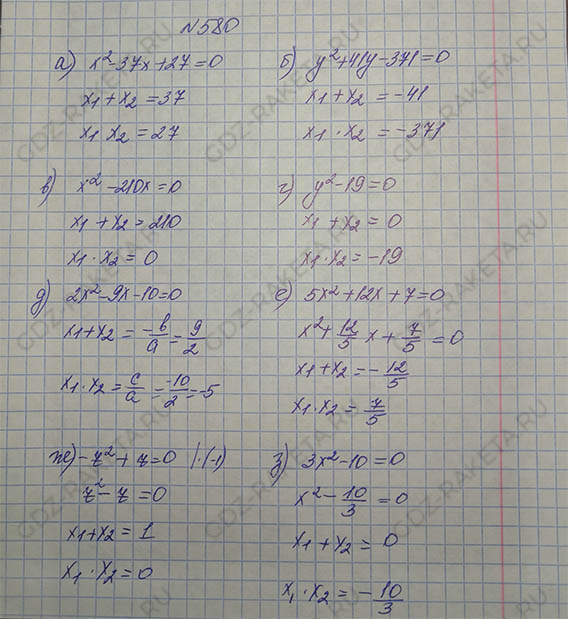 N580
а) x² - 37x + 27 = 0
x₁ + x₂ = 37
x₁ x₂ = 27
б) y² + 41y - 371 = 0
x₁ + x₂ = -41
x₁ · x₂ = -371
в) x² - 210x = 0
x₁ + x₂ = 210
x₁ · x₂ = 0
г) y² - 19 = 0
x₁ + x₂ = 0
x₁ · x₂ = -19
д) 2x² - 9x - 10 = 0
x₁ + x₂ = -b/a = 9/2
x₁ · x₂ = c/a = -10/2 = -5
е) 5x² + 12x + 7 = 0
x² + 12/5 x + 7/5 = 0
x₁ + x₂ = -12/5
x₁ · x₂ = 7/5
ж) -z² + z = 0 | · (-1)
z² - z = 0
x₁ + x₂ = 1
x₁ · x₂ = 0
з) 3x² - 10 = 0
x² - 10/3 = 0
x₁ + x₂ = 0
x₁ · x₂ = -10/3
GDZ-RAKETA.RU